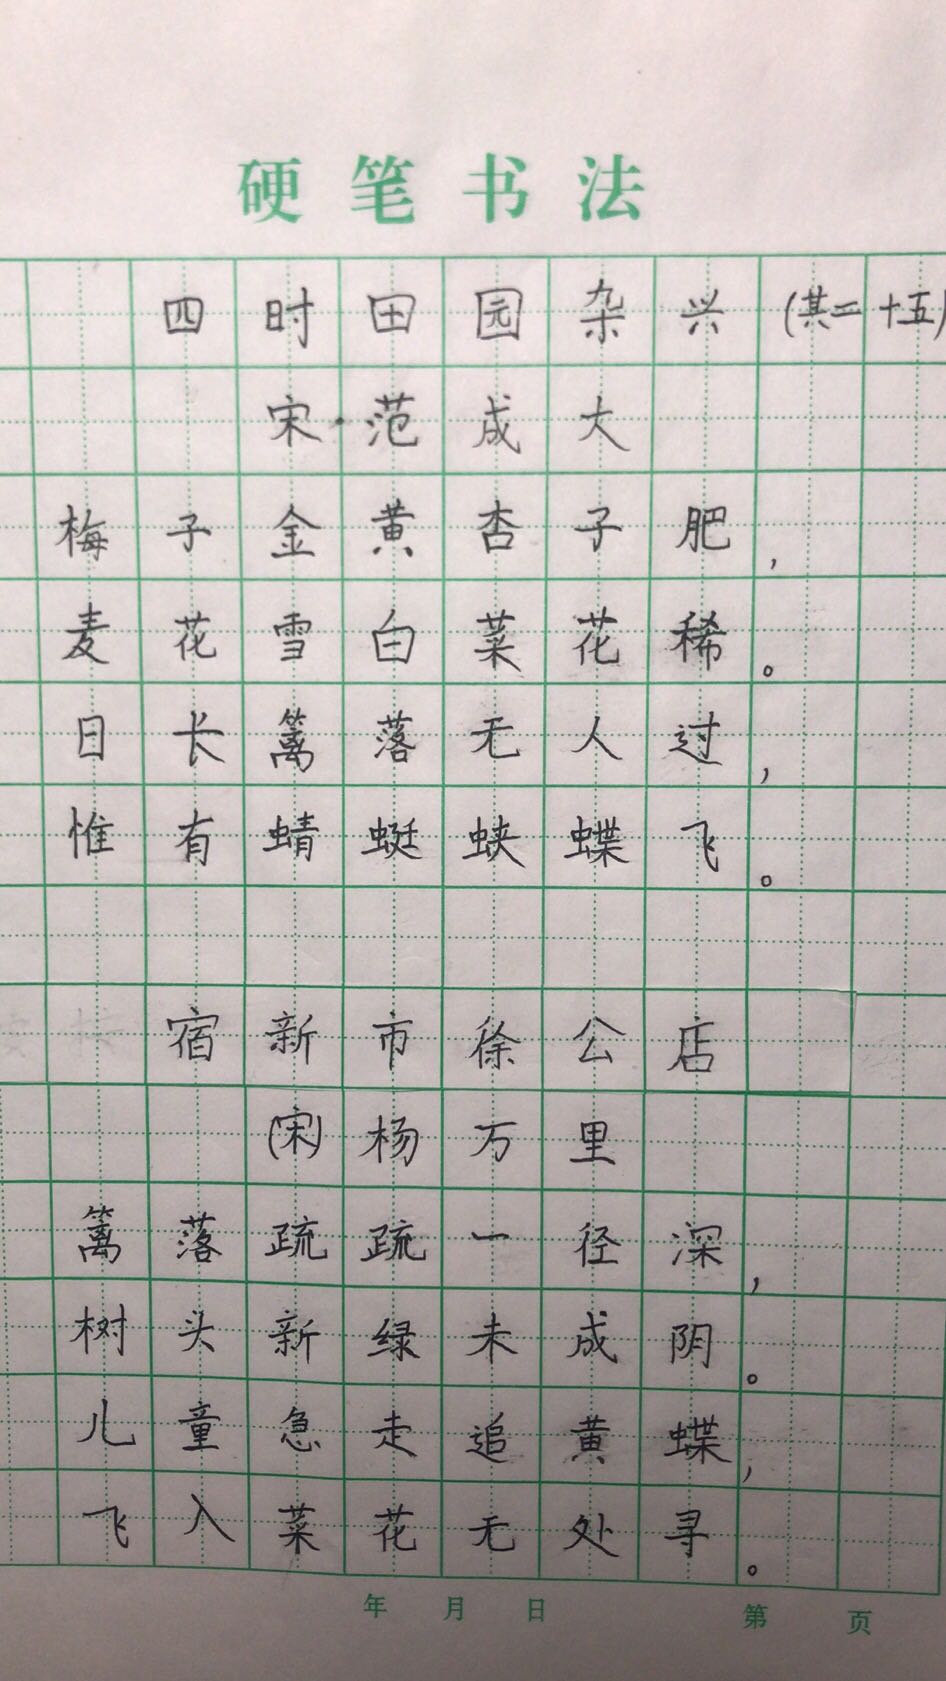 硬笔书法
四时田园杂兴(其二十五)
宋·范成大
梅子金黄杏子肥，
麦花雪白菜花稀。
日长篱落无人过，
惟有蜻蜓蛱蝶飞。
宿新市徐公店
(宋)杨万里
篱落疏疏一径深，
树头新绿未成阴。
儿童急走追黄蝶，
飞入菜花无处寻。
年 月 日 第 页